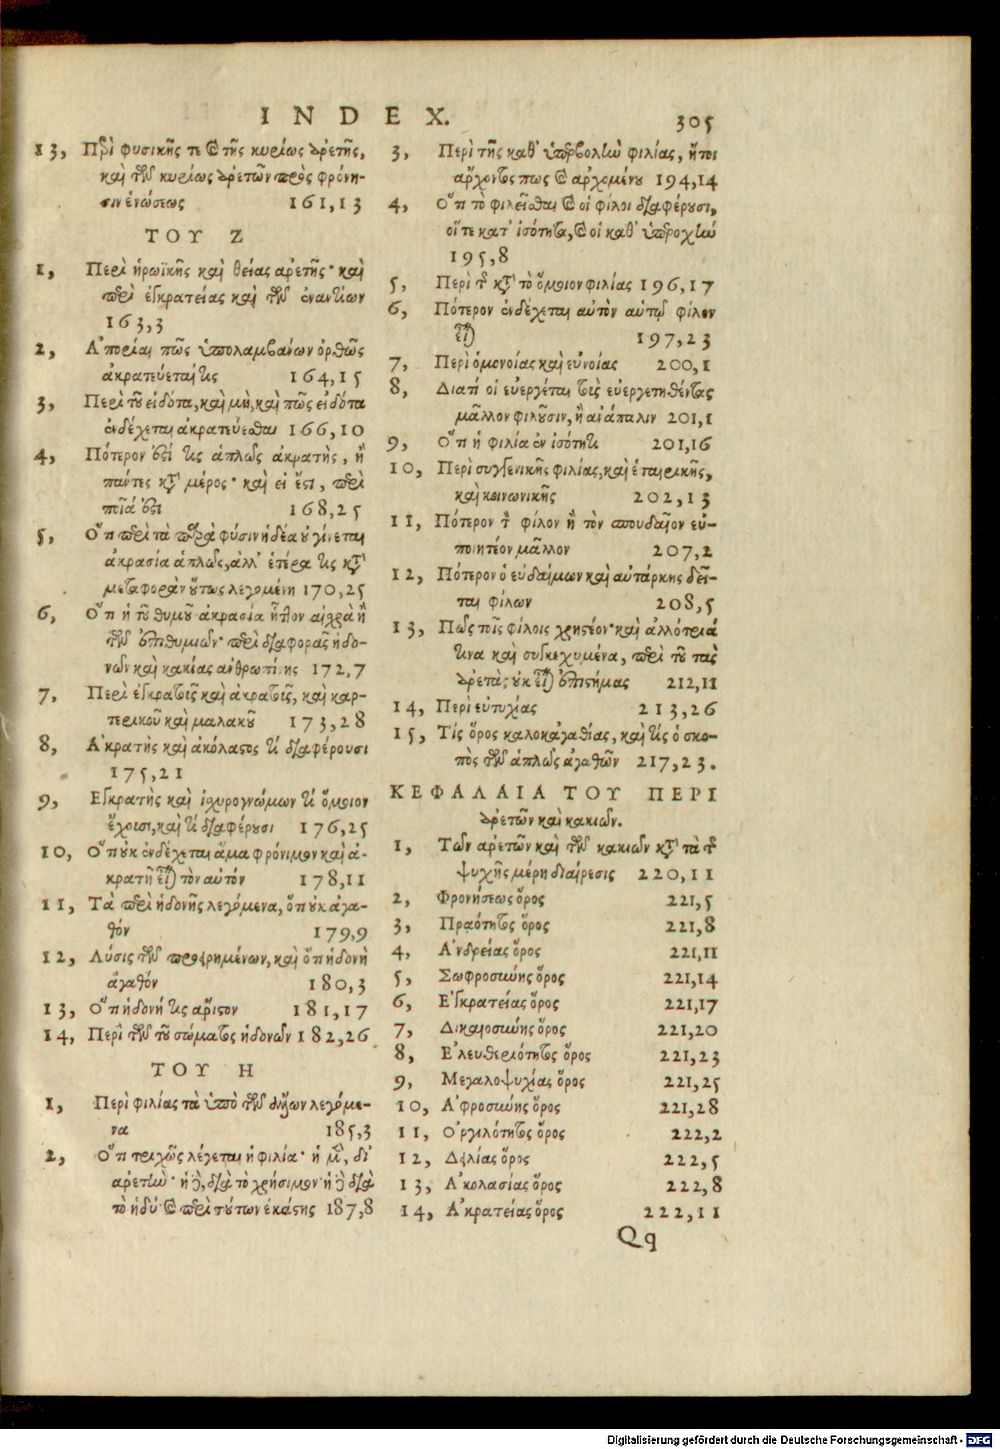 INDEX. 305
13, Περὶ φυσικῆς τε καὶ τῆς κυρίως ἀρετῆς,
καὶ τῶν κυρίως ἀρετῶν πρὸς φρόνη-
σιν ἑνώσεως 161,13
ΤΟΥ Ζ
1, Περὶ ἡρωϊκῆς καὶ θείας ἀρετῆς· καὶ
περὶ ἐγκρατείας καὶ τῶν ἐναντίων
163,3
2, Ἀπορίαι πῶς ὑπολαμβάνων ὀρθῶς
ἀκρατεύεταί τις 164,15
3, Περὶ τοῦ εἰδότα, καὶ μὴ, καὶ πῶς εἰδότα
ἐνδέχεται ἀκρατεύεσθαι 166,10
4, Πότερον ἐστί τις ἁπλῶς ἀκρατὴς, ἢ
πάντες κατὰ μέρος· καὶ εἰ ἔστι, περὶ
ποῖά ἐστι 168,25
5, Ὅτι περὶ τὰ παρὰ φύσιν ἡδέα οὐ γίνεται
ἀκρασία ἁπλῶς, ἀλλ' ἑτέρα τις κατὰ
μεταφορὰν οὕτως λεγομένη 170,25
6, Ὅτι ἡ τοῦ θυμοῦ ἀκρασία ἧττον αἰσχρὰ ἢ
τῶν ἐπιθυμιῶν· περὶ διαφορᾶς ἡδο-
νῶν καὶ κακίας ἀνθρωπίνης 172,7
7, Περὶ ἐγκρατοῦς καὶ ἀκρατοῦς, καὶ καρ-
τερικοῦ καὶ μαλακοῦ 173,28
8, Ἀκρατὴς καὶ ἀκόλαστος τί διαφέρουσι
175,21
9, Ἐγκρατὴς καὶ ἰσχυρογνώμων τί ὅμοιον
ἔχουσι, καὶ τί διαφέρουσι 176,25
10, Ὅτι οὐκ ἐνδέχεται ἅμα φρόνιμον καὶ ἀ-
κρατῆ εἶναι τὸν αὐτόν 178,11
11, Τὰ περὶ ἡδονῆς λεγόμενα, ὅτι οὐκ ἀγα-
θόν 179,9
12, Λύσις τῶν προειρημένων, καὶ ὅτι ἡδονὴ
ἀγαθόν 180,3
13, Ὅτι ἡδονή τις ἄριστον 181,17
14, Περὶ τῶν τοῦ σώματος ἡδονῶν 182,26
ΤΟΥ Η
1, Περὶ φιλίας τὰ ὑπὸ τῶν λεγόμε-
να 185,3
2, Ὅτι τριχῶς λέγεται ἡ φιλία· ἡ μὲν, δι'
ἀρετὴν· ἡ δὲ, διὰ τὸ χρήσιμον· ἡ δὲ διὰ
τὸ ἡδύ· καὶ περὶ τούτων ἑκάστης 187,8
3, Περὶ τῆς καθ' ὑπερβολὴν φιλίας, ἤτοι
ἄρχοντος πως καὶ ἀρχομένου 194,14
4, Ὅτι τὸ φιλεῖσθαι καὶ οἱ φίλοι διαφέρουσι,
οἵ τε κατ' ἰσότητα, καὶ οἱ καθ' ὑπεροχὴν
195,8
5, Περὶ τῆς κατὰ τὸ ὅμοιον φιλίας 196,17
6, Πότερον ἐνδέχεται αὐτὸν αὑτῷ φίλον
εἶναι 197,23
7, Περὶ ὁμονοίας καὶ εὐνοίας 200,1
8, Διατί οἱ εὐεργέται τοὺς εὐεργετηθέντας
μᾶλλον φιλοῦσιν, ἢ ἀνάπαλιν 201,1
9, Ὅτι ἡ φιλία ἐν ἰσότητι 201,16
10, Περὶ συγγενικῆς φιλίας, καὶ ἑταιρικῆς,
καὶ κοινωνικῆς 202,13
11, Πότερον τὸν φίλον ἢ τὸν σπουδαῖον εὖ-
ποιητέον μᾶλλον 207,2
12, Πότερον ὁ εὐδαίμων καὶ αὐτάρκης δεῖ-
ται φίλων 208,5
13, Πῶς τοῖς φίλοις χρηστέον· καὶ ἀλλότριά
τινα καὶ συγκεχυμένα, περὶ τοῦ τὰς
ἀρετὰς οὐκ εἶναι ἐπιστήμας 212,11
14, Περὶ εὐτυχίας 213,26
15, Τίς ὅρος καλοκἀγαθίας, καὶ τίς ὁ σκο-
πὸς τῶν ἁπλῶς ἀγαθῶν 217,23.
ΚΕΦΑΛΑΙΑ ΤΟΥ ΠΕΡΙ
ἀρετῶν καὶ κακιῶν.
1, Τῶν ἀρετῶν καὶ τῶν κακιῶν κατὰ τὰ τῆς
ψυχῆς μέρη διαίρεσις 220,11
2, Φρονήσεως ὅρος 221,5
3, Πραότητος ὅρος 221,8
4, Ἀνδρείας ὅρος 221,11
5, Σωφροσύνης ὅρος 221,14
6, Ἐγκρατείας ὅρος 221,17
7, Δικαιοσύνης ὅρος 221,20
8, Ἐλευθεριότητος ὅρος 221,23
9, Μεγαλοψυχίας ὅρος 221,25
10, Ἀφροσύνης ὅρος 221,28
11, Ὀργιλότητος ὅρος 222,2
12, Δειλίας ὅρος 222,5
13, Ἀκολασίας ὅρος 222,8
14, Ἀκρατείας ὅρος 222,11
Qq
Digitalisierung gefördert durch die Deutsche Forschungsgemeinschaft - DFG